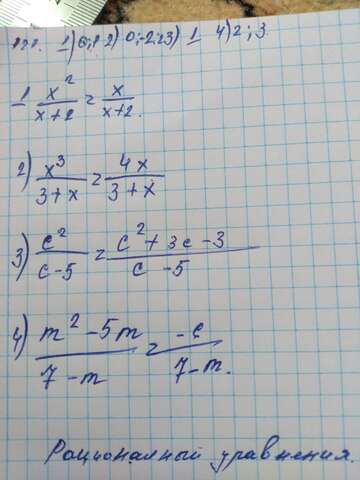 1) 0;1 2) 0;-2;2 3) 1 4) 2;3.
1 x²/(x+2) = x/(x+2).
2) x³/(3+x) = 4x/(3+x)
3) c²/(c-5) = (c²+3c-3)/(c-5)
4) (m²-5m)/(7-m) = -6/(7-m).
Рационалный уравнения.